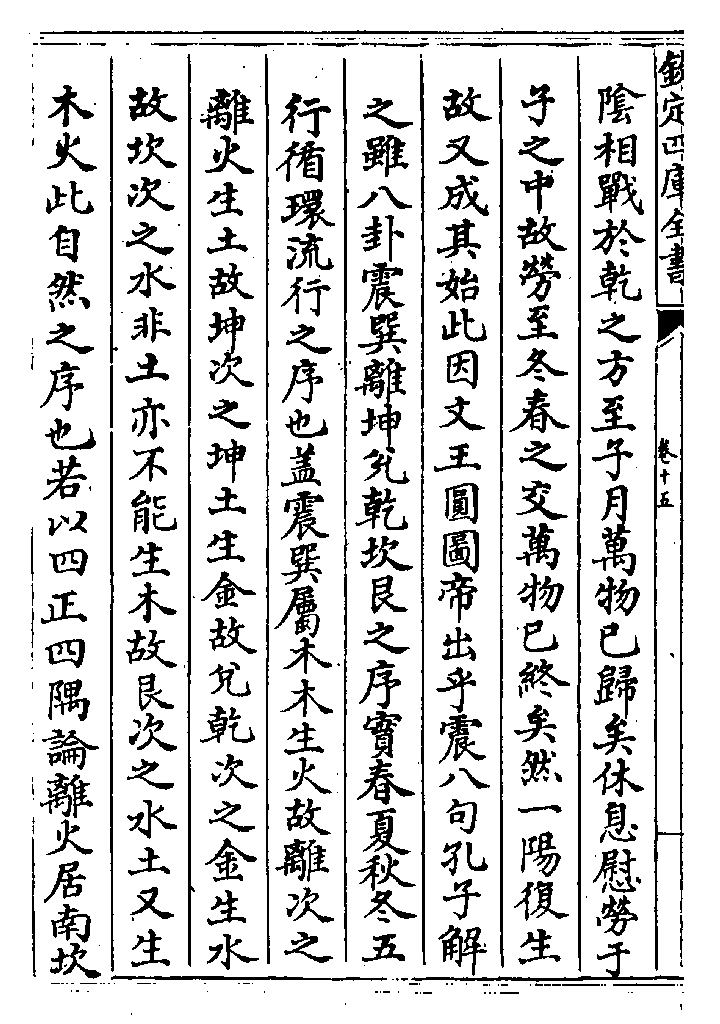 欽定四庫全書
卷十五
陰相戰於乾之方至子月萬物已歸矣休息慰勞于
子之中故勞至冬春之交萬物已終矣然一陽復生
故又成其始此因文王圓圖帝出乎震八句孔子解
之雖八卦震巽離坤兌乾坎艮之序實春夏秋冬五
行循環流行之序也盖震巽屬木木生火故離次之
離火生土故坤次之坤土生金故兌乾次之金生水
故坎次之水非土亦不能生木故艮次之水土又生
木火此自然之序也若以四正四隅論離火居南坎